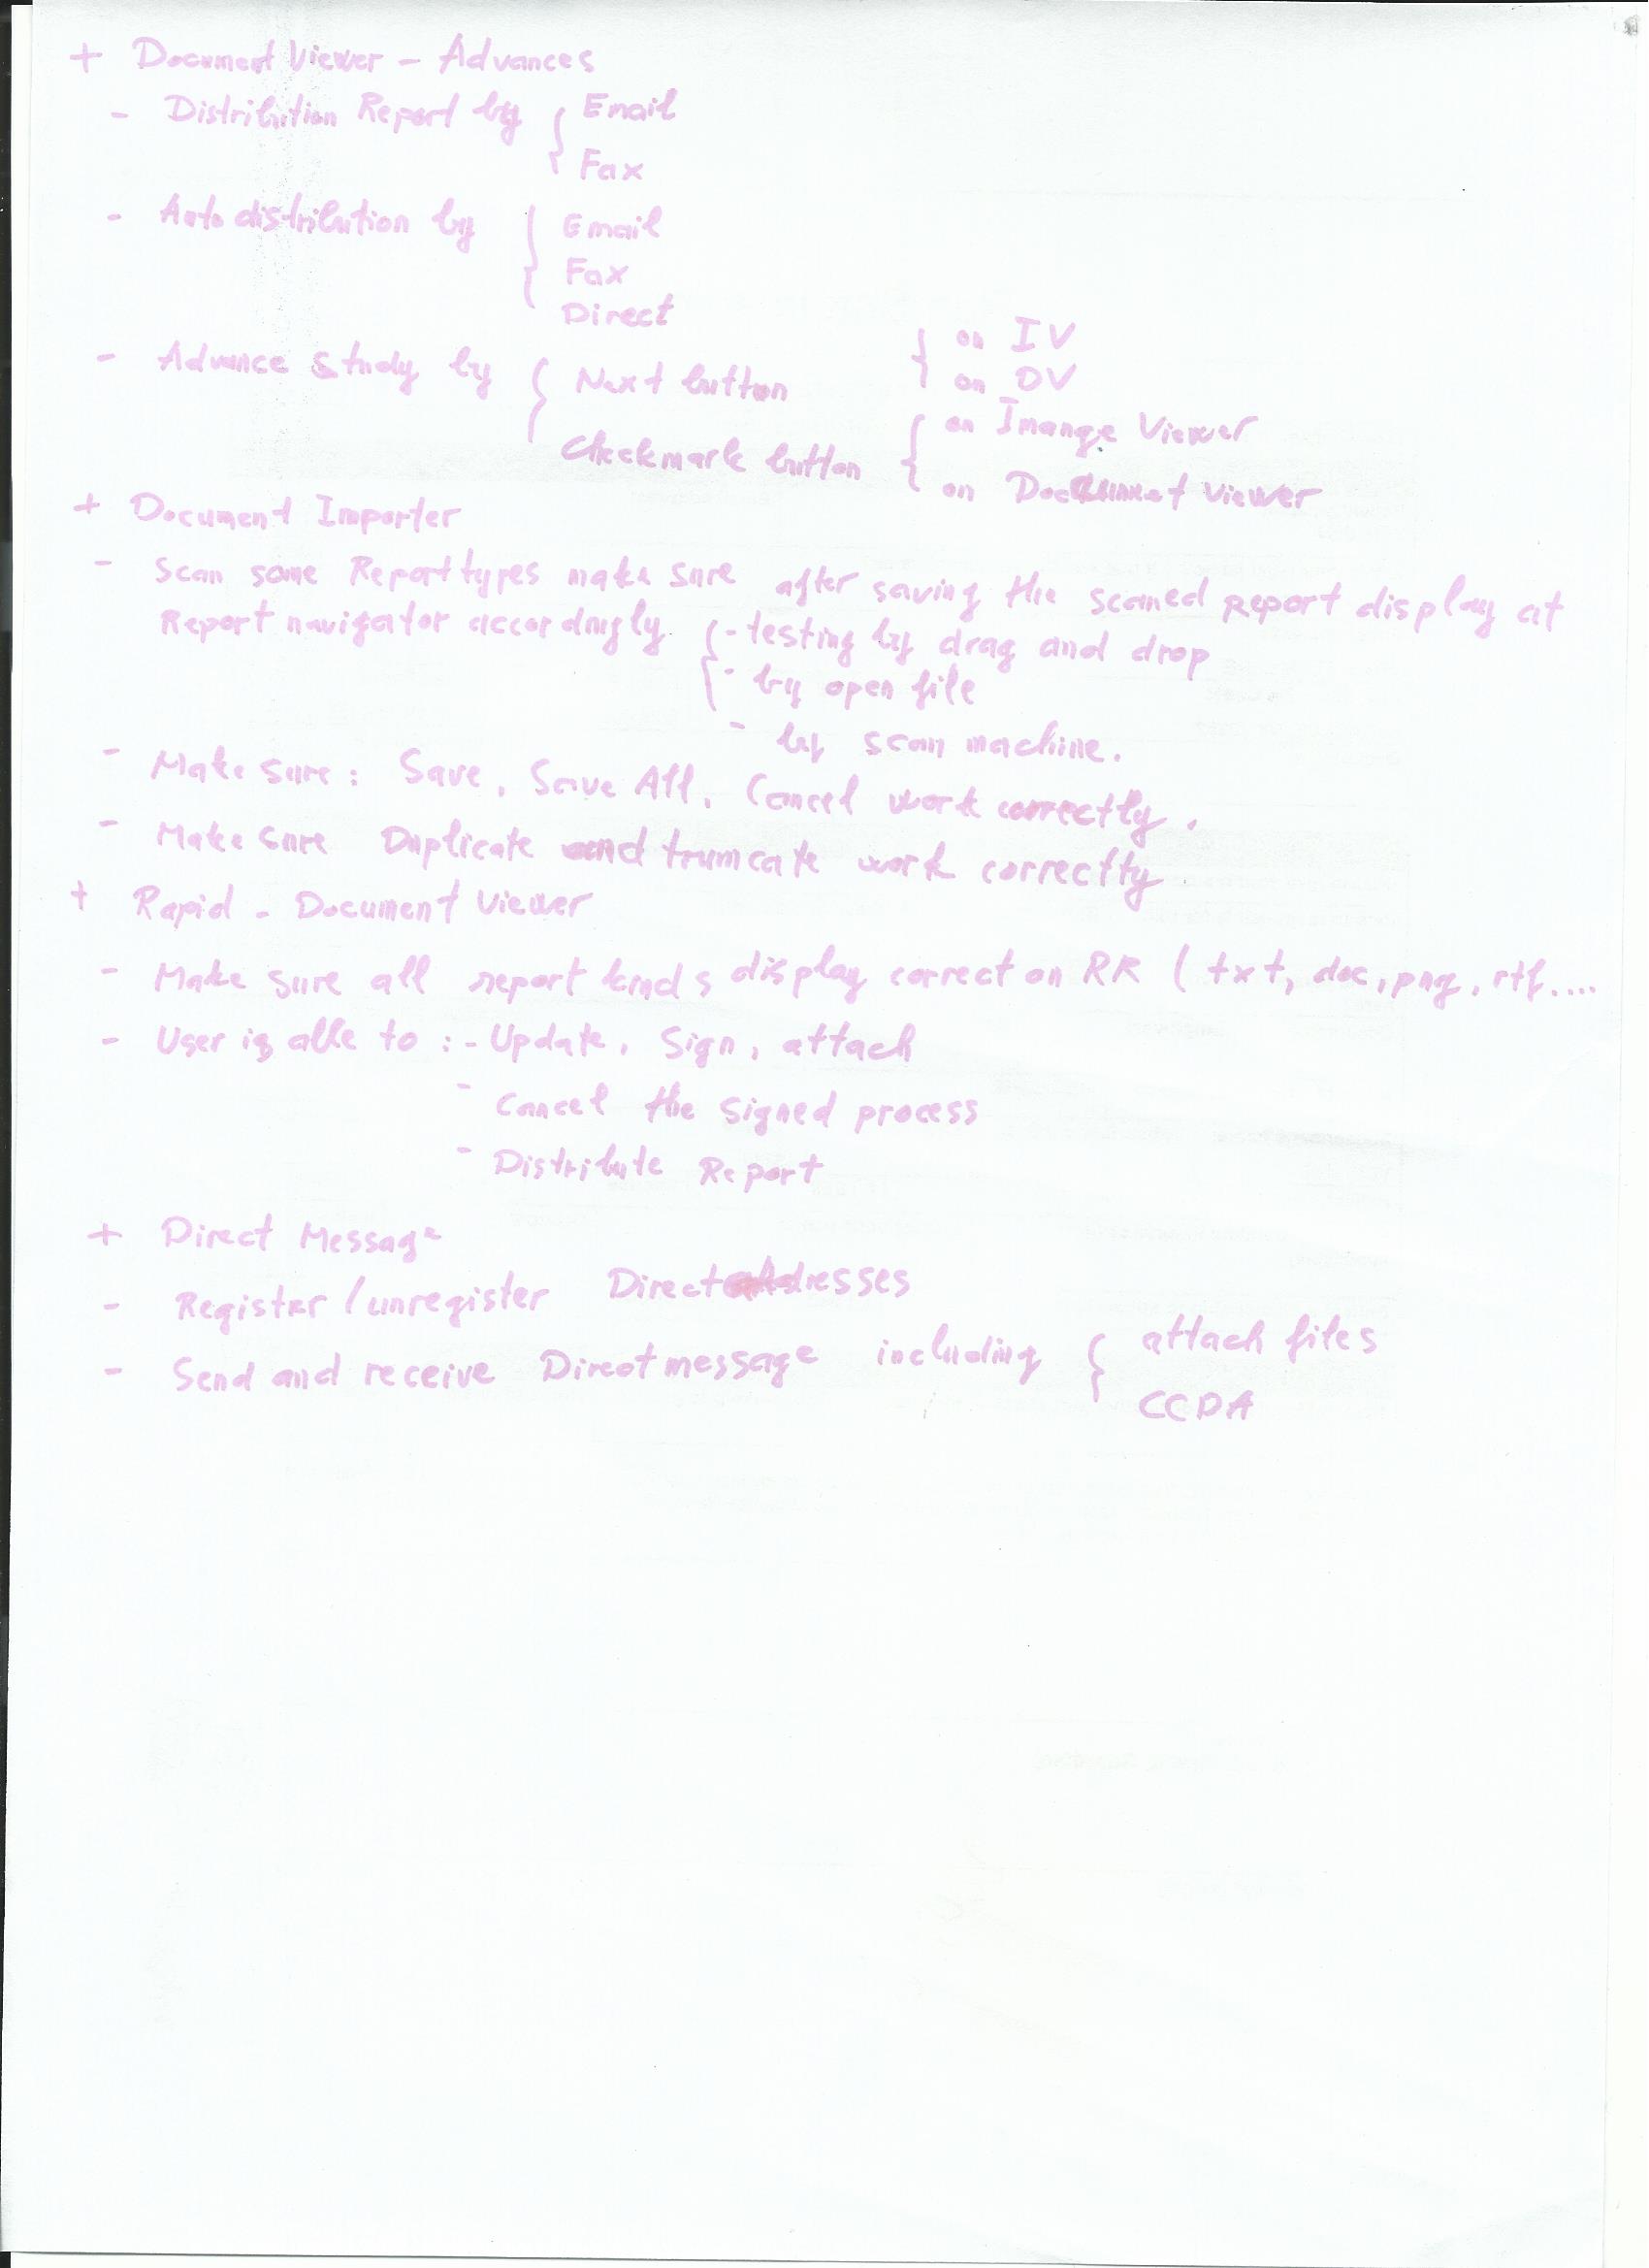 + Document Viewer - Advances
- Distribution Report by { Email
Fax
- Auto distribution by { Email
Fax
Direct
- Advance Study by { Next button } on IV
on DV
Checkmark button { on Imange Viewer
on Document Viewer
+ Document Importer
- Scan some Report types make sure after saving the scaned report display at
Report navigator accordingly { - testing by drag and drop
- by open file
- by scan machine.
- Make sure: Save, Save All, Cancel work correctly.
- Make sure Duplicate and truncate work correctly.
+ Rapid - Document Viewer
- Make sure all report kinds display correct on RR ( txt, doc, png, rtf....
- User is able to : - Update, Sign, attach
- Cancel the signed process
- Distribute Report
+ Direct Message
- Register / unregister Direct adresses
- Send and receive Direct message including { attach files
CCDA